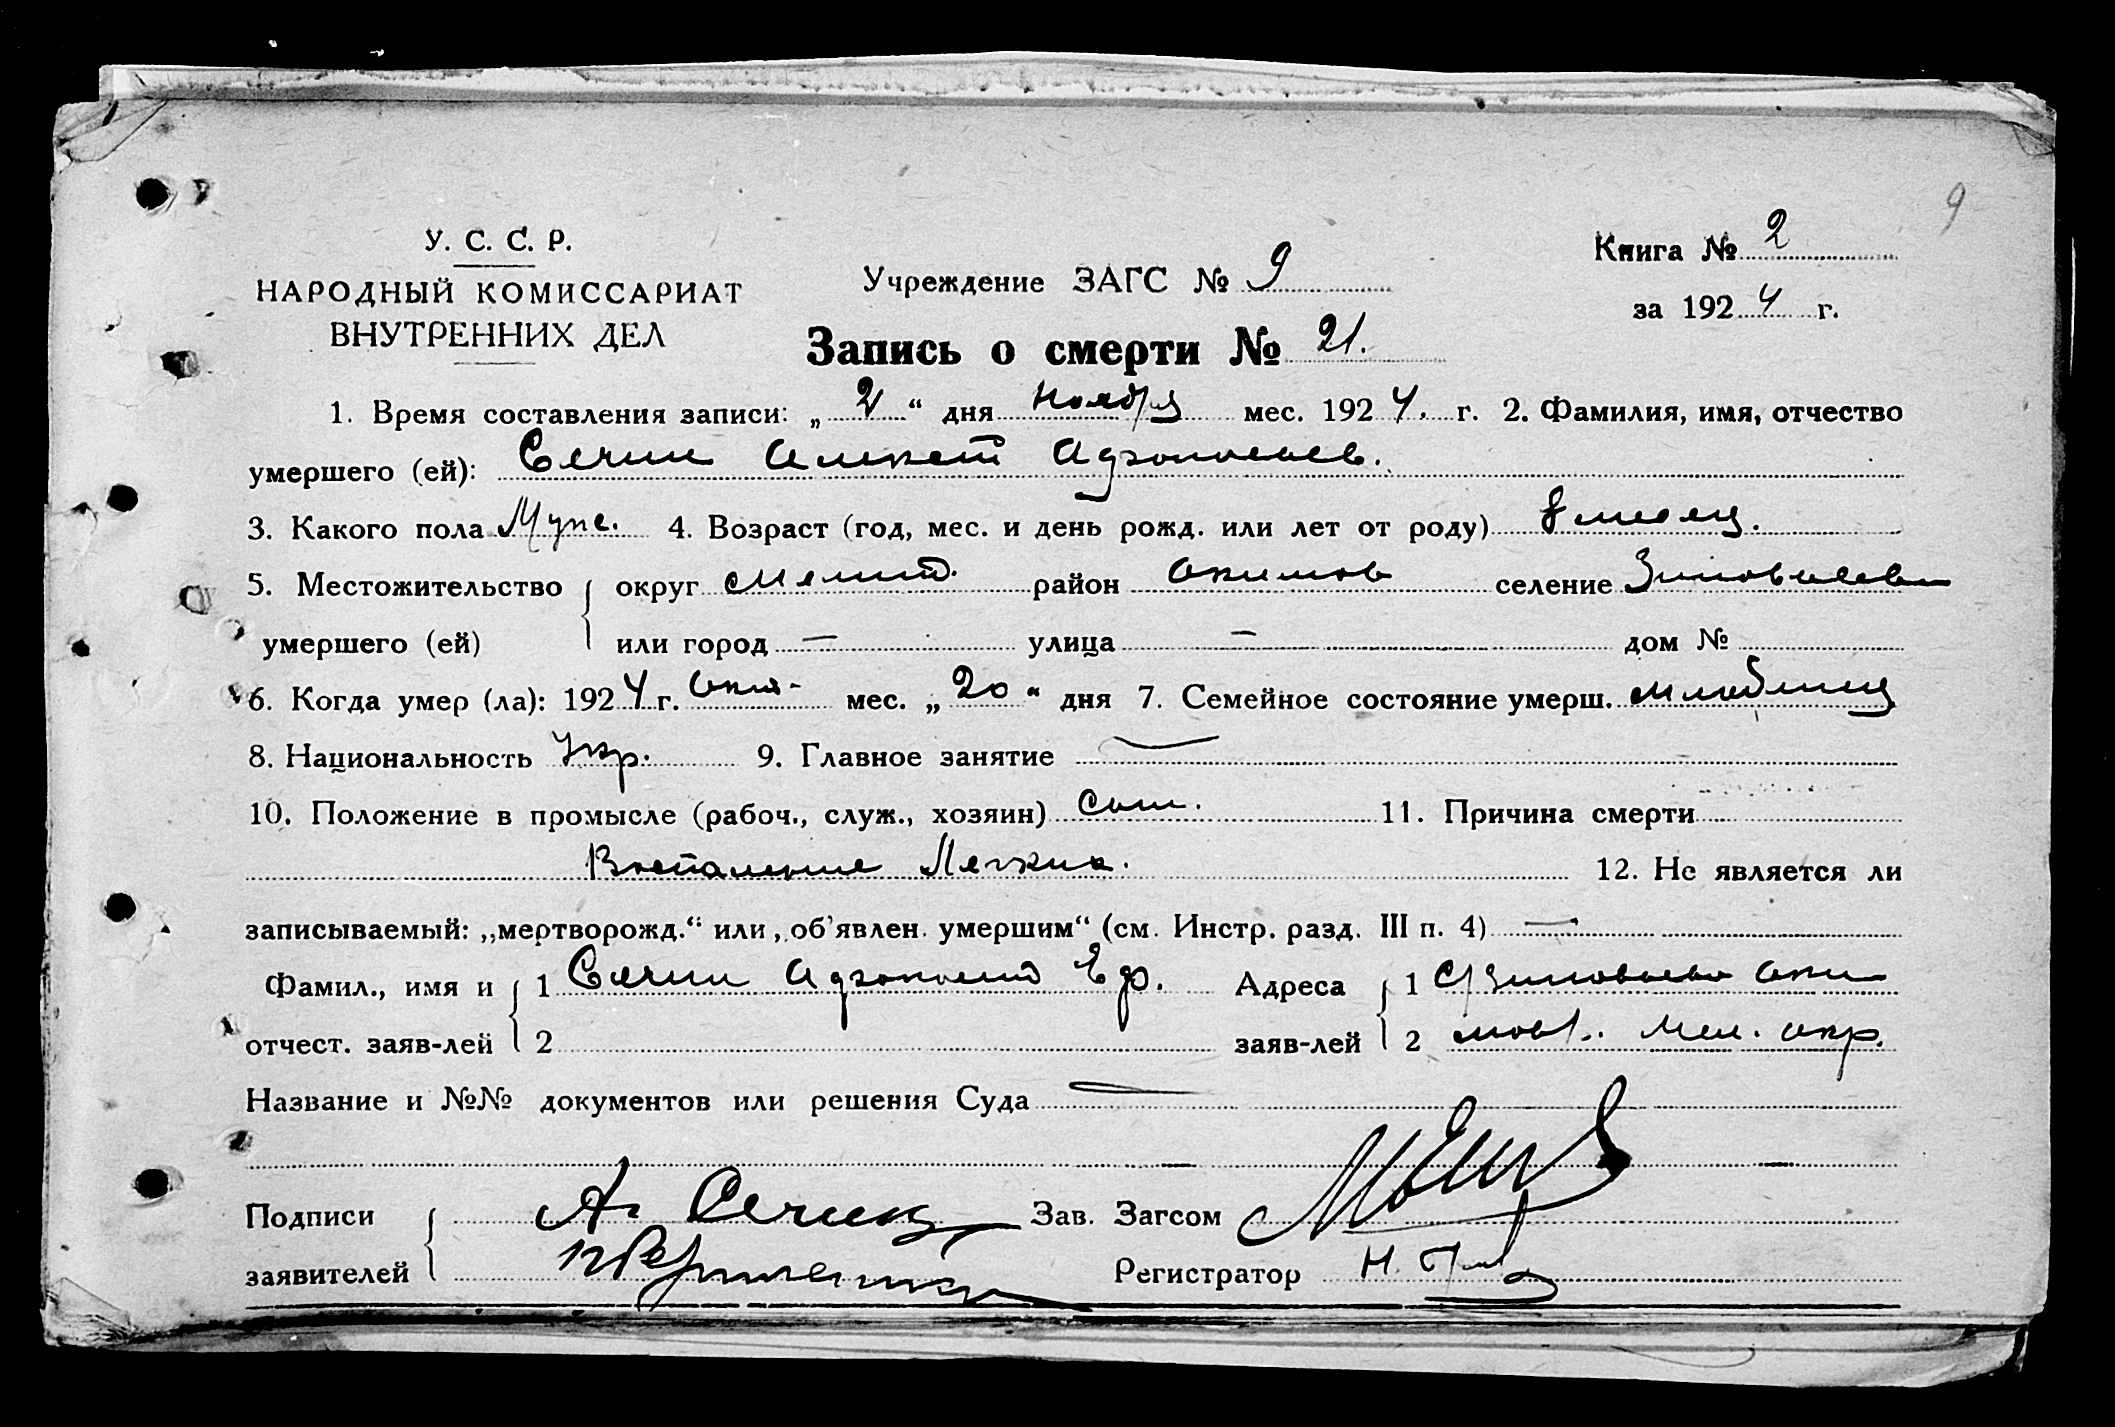 9
У. С. С. Р.
НАРОДНЫЙ КОМИССАРИАТ
ВНУТРЕННИХ ДЕЛ
Учреждение ЗАГС № 9
Книга № 2
за 1924 г.
Запись о смерти № 21.
1. Время составления записи: „2“ дня Ноября мес. 1924. г. 2. Фамилия, имя, отчество
умершего (ей): Сечин
3. Какого пола Муж. 4. Возраст (год, мес. и день рожд. или лет от роду) 8 месяц.
5. Местожительство округ Мелит. район Акимов селение Зиновьево
умершего (ей) или город — улица — дом №
6. Когда умер (ла): 1924 г. Окт. мес. „20“ дня 7. Семейное состояние умерш. младенец
8. Национальность Укр. 9. Главное занятие —
10. Положение в промысле (рабоч., служ., хозяин) сын. 11. Причина смерти
Воспаление Легких. 12. Не является ли
записываемый: „мертворожд.“ или „об'явлен. умершим“ (см. Инстр. разд. III п. 4) —
Фамил., имя и 1 Сечин Еф. Адреса 1 с. Зиновьево Аки
отчест. заяв-лей 2 заяв-лей 2 мов р. Мел. окр.
Название и №№ документов или решения Суда —
Подписи А. Сечин Зав. Загсом
заявителей Регистратор Н.